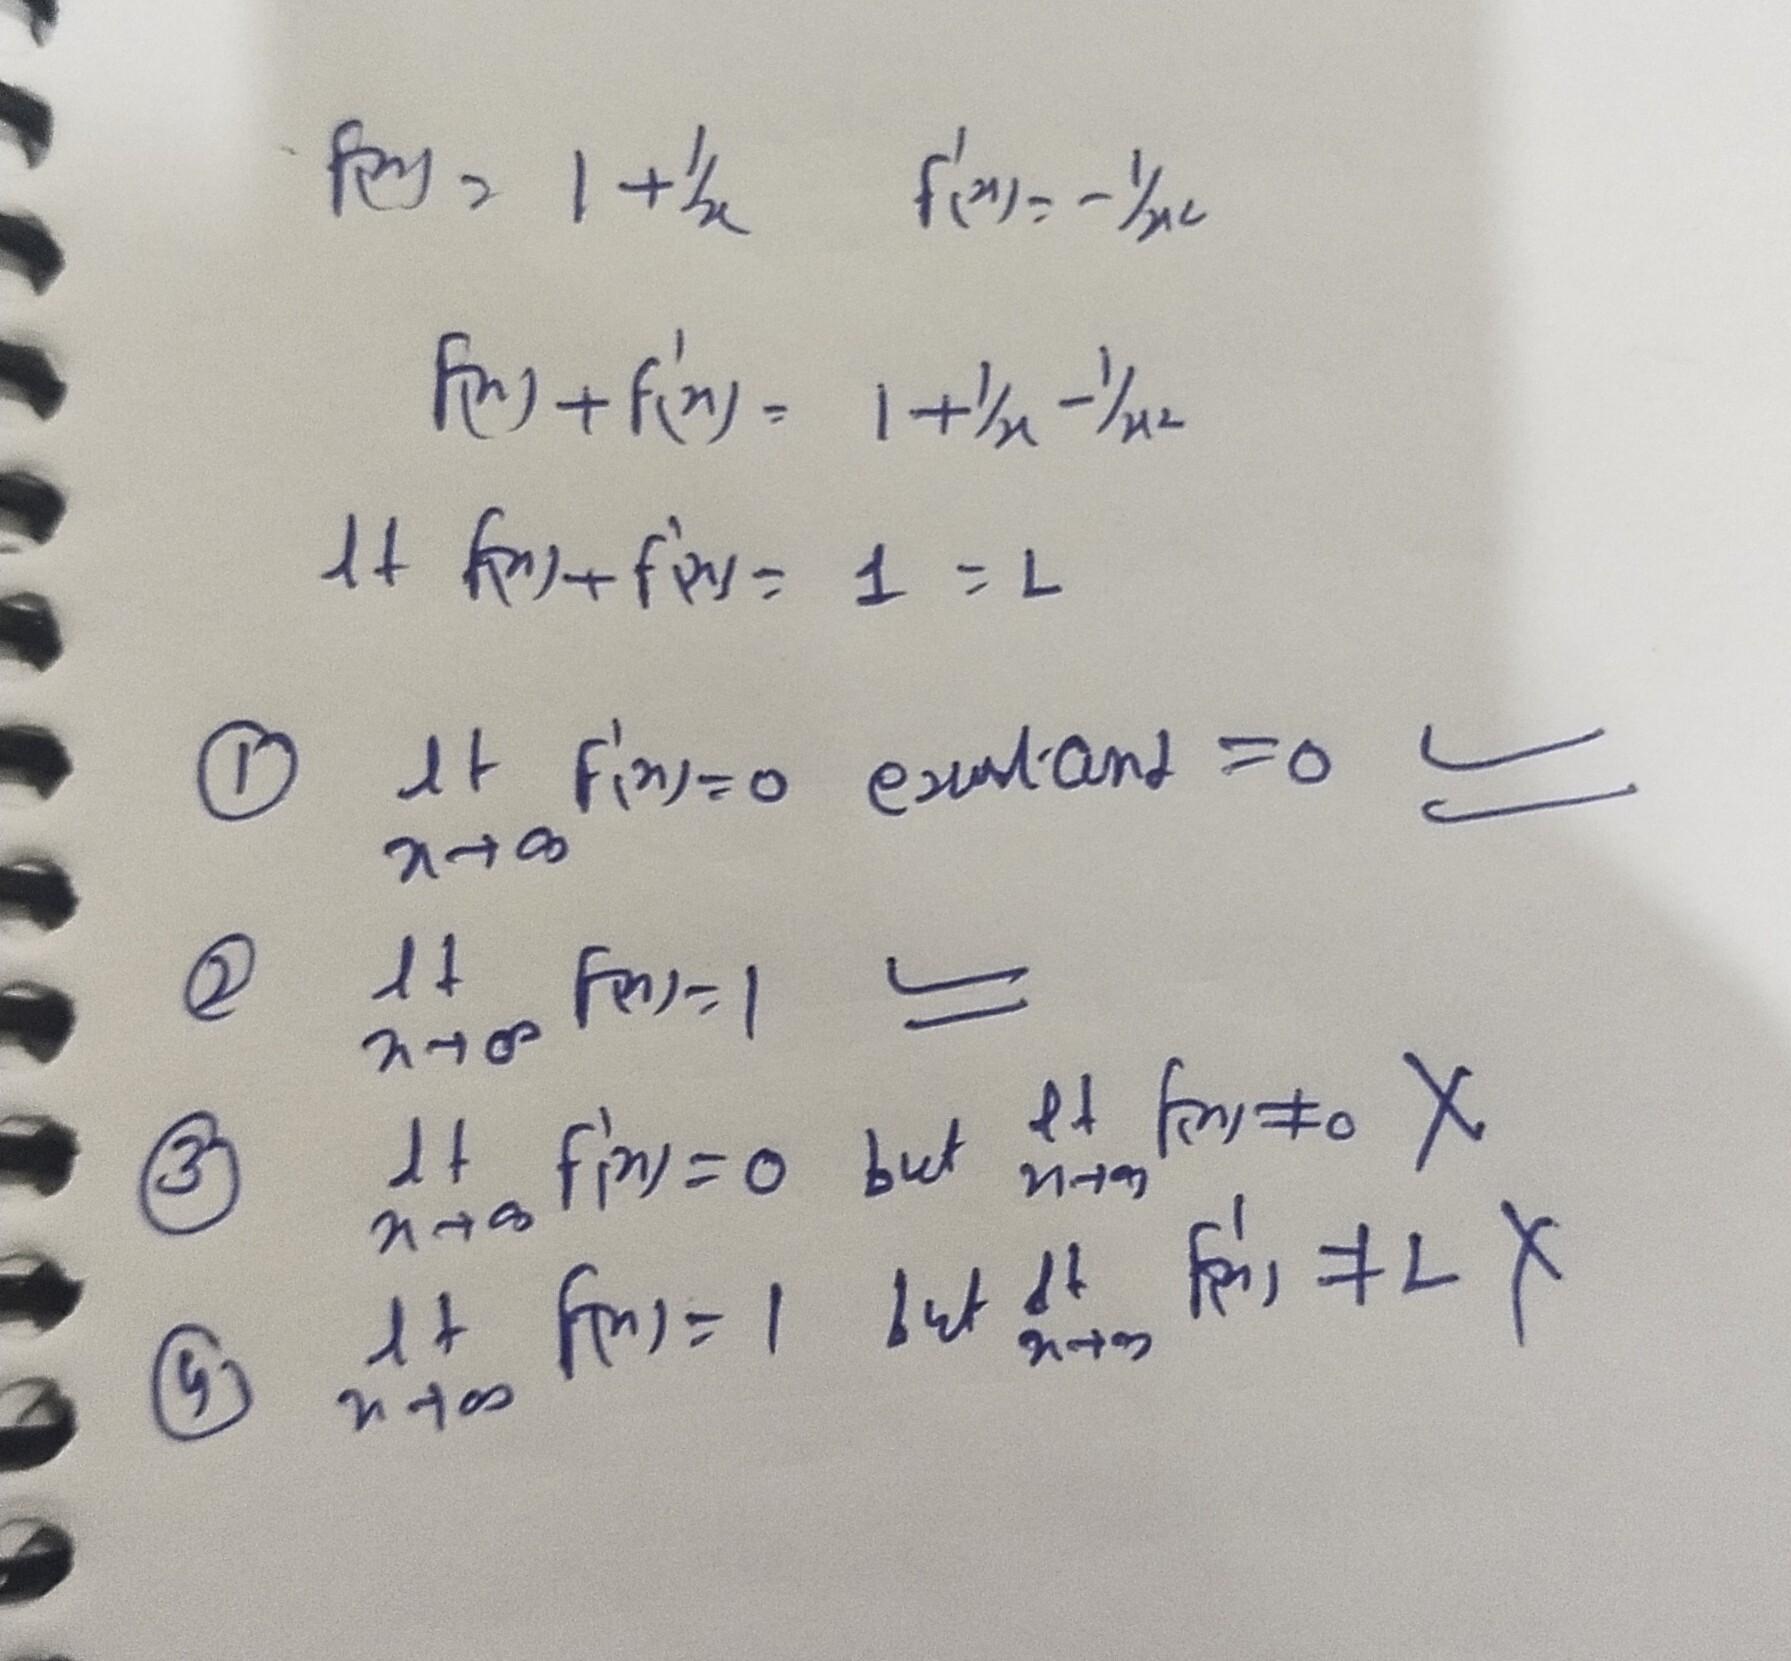 f(x) = 1 + 1/x f'(x) = -1/x2
f(x) + f'(x) = 1 + 1/x - 1/x2
lt f(x) + f'(x) = 1 = L
① lt x→∞ f'(x) = 0 exist and = 0 ✓
② lt x→∞ f(x) = 1 ✓
③ lt x→∞ f'(x) = 0 but lt x→∞ f(x) ≠ 0 X
④ lt x→∞ f(x) = 1 but lt x→∞ f'(x) ≠ L X